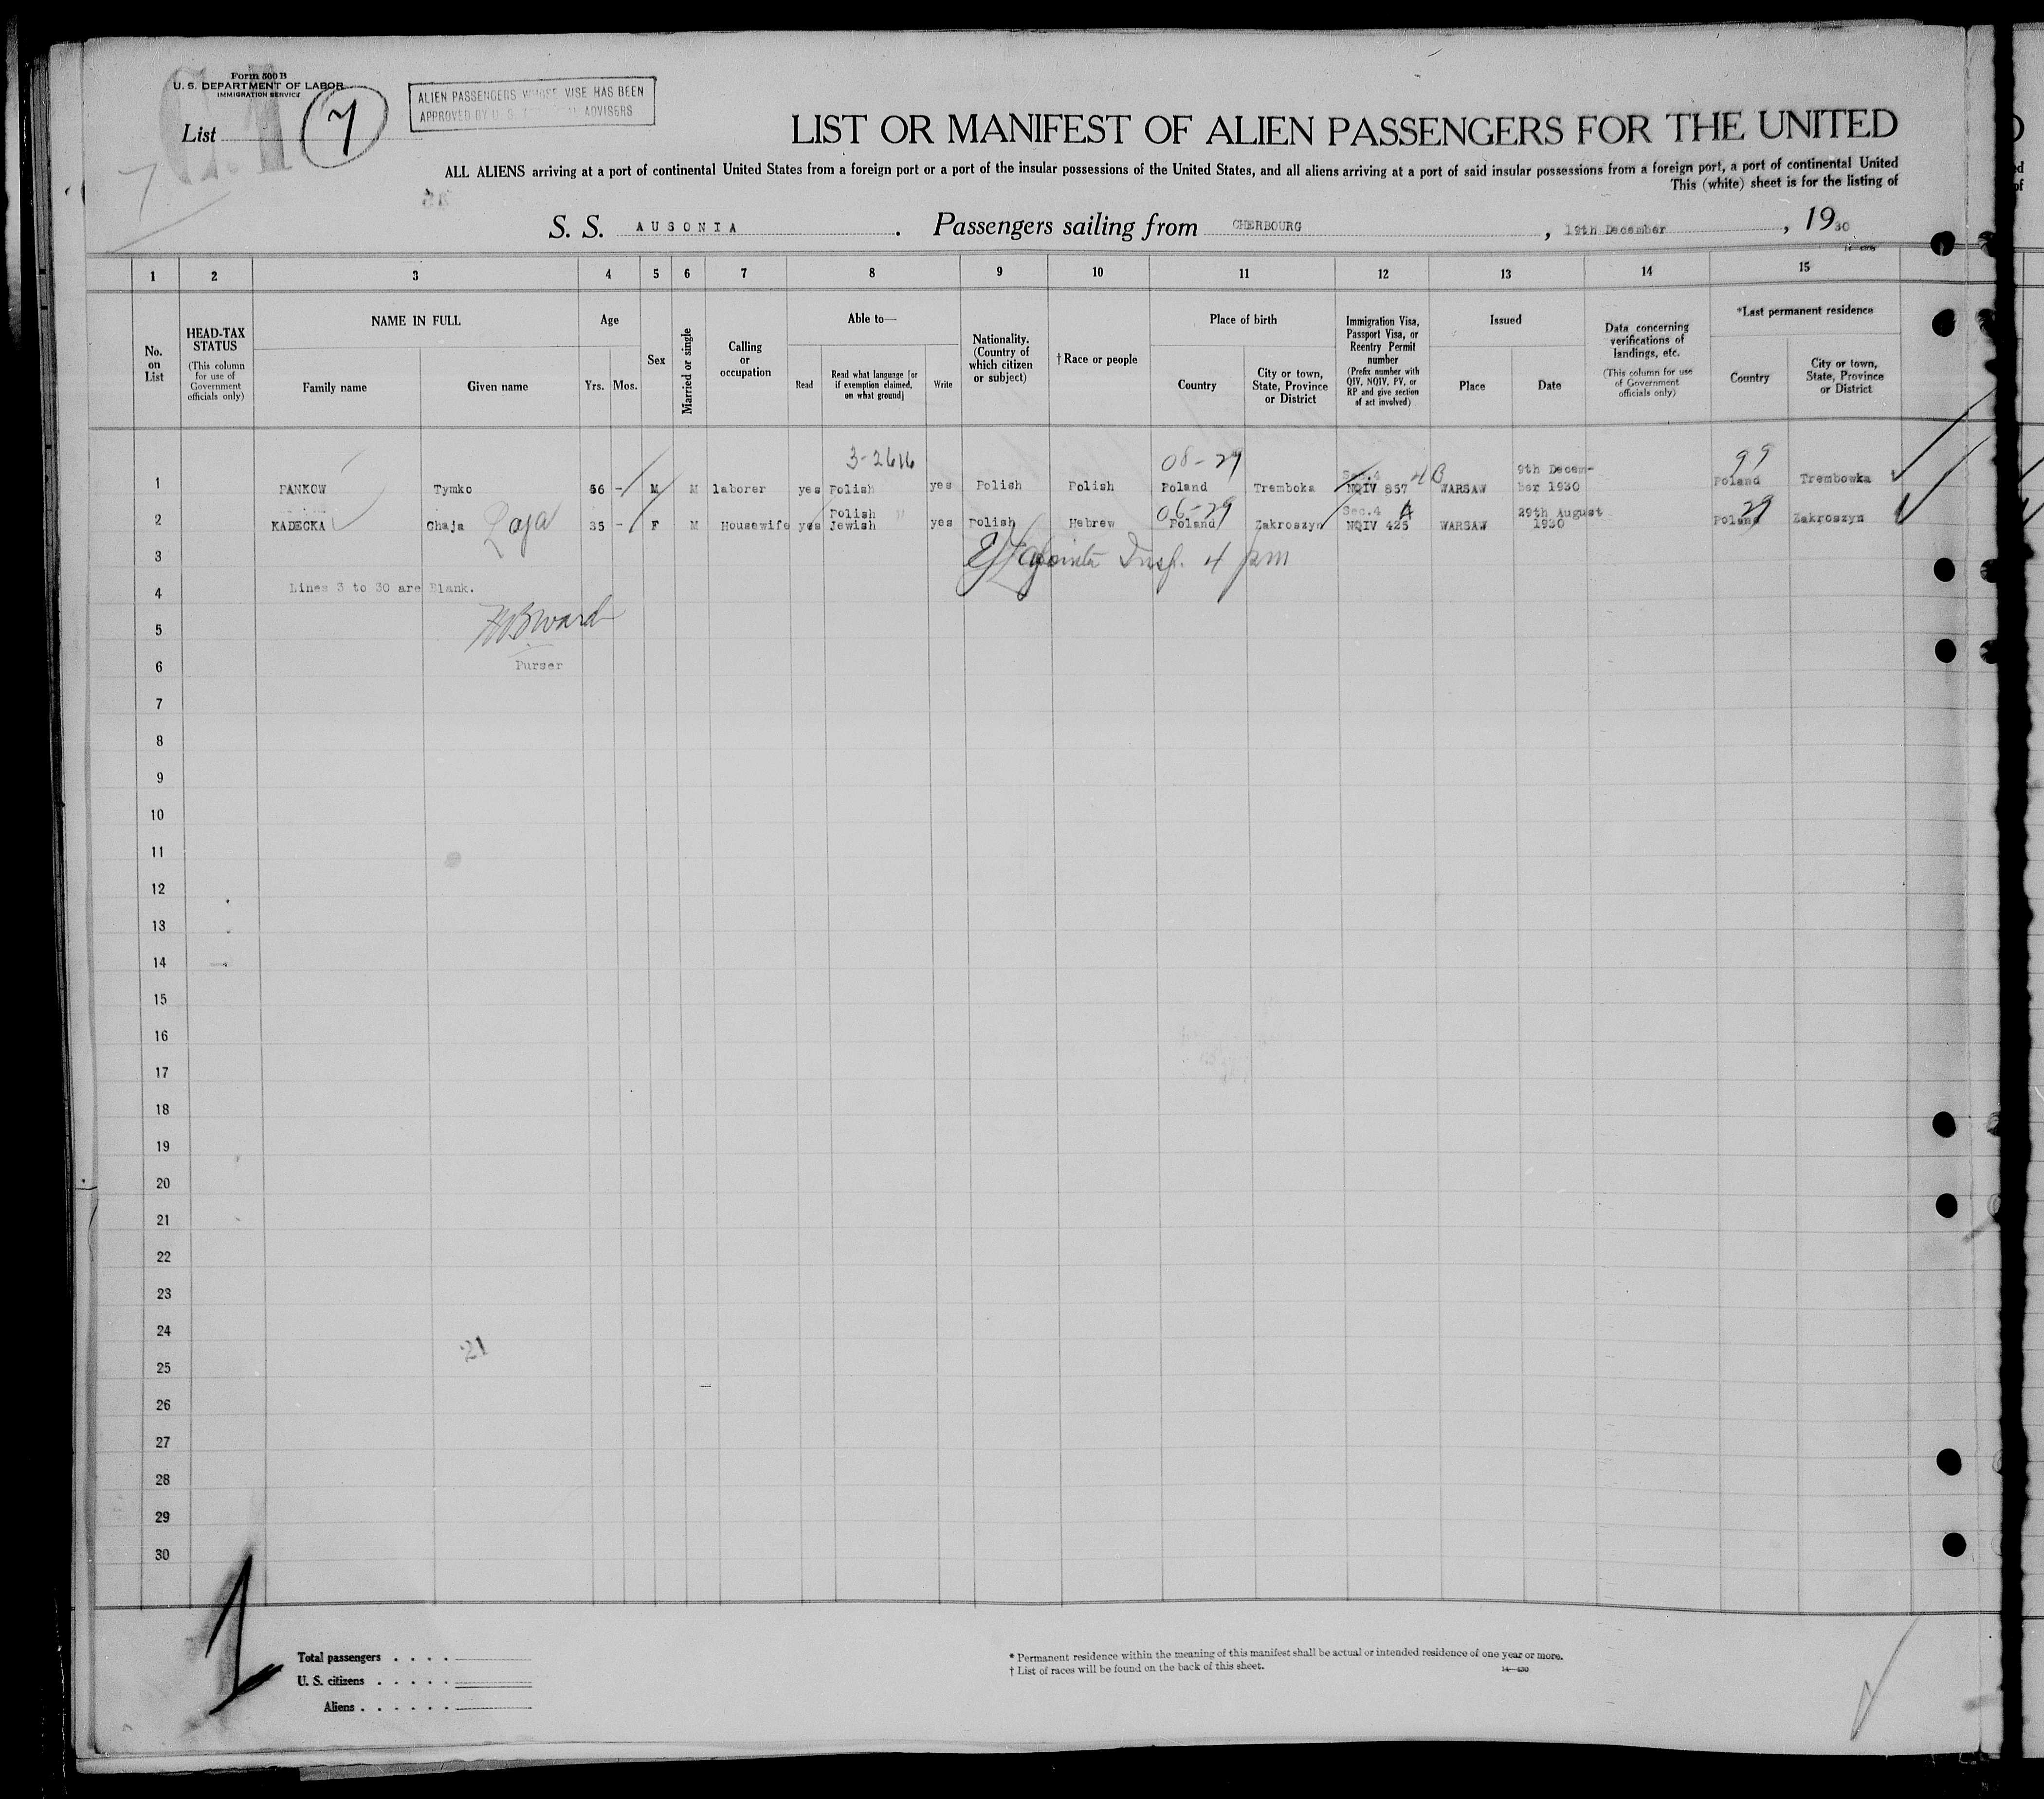 Form 500 B
U. S. DEPARTMENT OF LABOR
IMMIGRATION SERVICE
List 7
ALIEN PASSENGERS WHOSE VISE HAS BEEN
APPROVED BY U. S. ADVISERS
7
LIST OR MANIFEST OF ALIEN PASSENGERS FOR THE UNITED
ALL ALIENS arriving at a port of continental United States from a foreign port or a port of the insular possessions of the United States, and all aliens arriving at a port of said insular possessions from a foreign port, a port of continental United
This (white) sheet is for the listing of
S. S. AUSONIA . Passengers sailing from CHERBOURG , 19th December , 1930
1 2 3 4 5 6 7 8 9 10 11 12 13 14 15
No. on List
HEAD-TAX STATUS
(This column for use of Government officials only)
NAME IN FULL
Family name
Given name
Age
Yrs. Mos.
Sex
Married or single
Calling or occupation
Able to—
Read
Read what language [or if exemption claimed, on what ground]
Write
Nationality. (Country of which citizen or subject)
†Race or people
Place of birth
Country
City or town, State, Province or District
Immigration Visa, Passport Visa, or Reentry Permit number
(Prefix number with QIV, NQIV, PV, or RP and give section of act involved)
Issued
Place
Date
Data concerning verifications of landings, etc.
(This column for use of Government officials only)
*Last permanent residence
Country
City or town, State, Province or District
3-2616 08-29 99
Sec.4 4B 9th Decem-
1 PANKOW Tymko 56 - M M laborer yes Polish yes Polish Polish Poland Tremboka NQIV 857 WARSAW ber 1930 Poland Trembowka
Polish " 06-29 Sec.4 A 29th August 29
2 KADECKA Chaja 35 - F M Housewife yes Jewish yes Polish Hebrew Poland Zakroszyn NQIV 425 WARSAW 1930 Poland Zakroszyn
3 Insp. 4 pm
Lines 3 to 30 are Blank.
4
5 Ward
6 Purser
7
8
9
10
11
12
13
14
15
16
17
18
19
20
21
22
23
24
21
25
26
27
28
29
30
Total passengers . . . .
U. S. citizens . . . . .
Aliens . . . . . .
* Permanent residence within the meaning of this manifest shall be actual or intended residence of one year or more.
† List of races will be found on the back of this sheet.